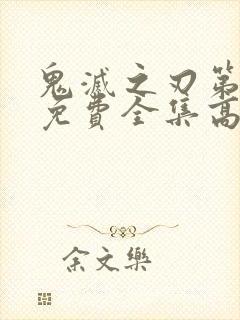 鬼滅之刃第
免費全集高
余文樂